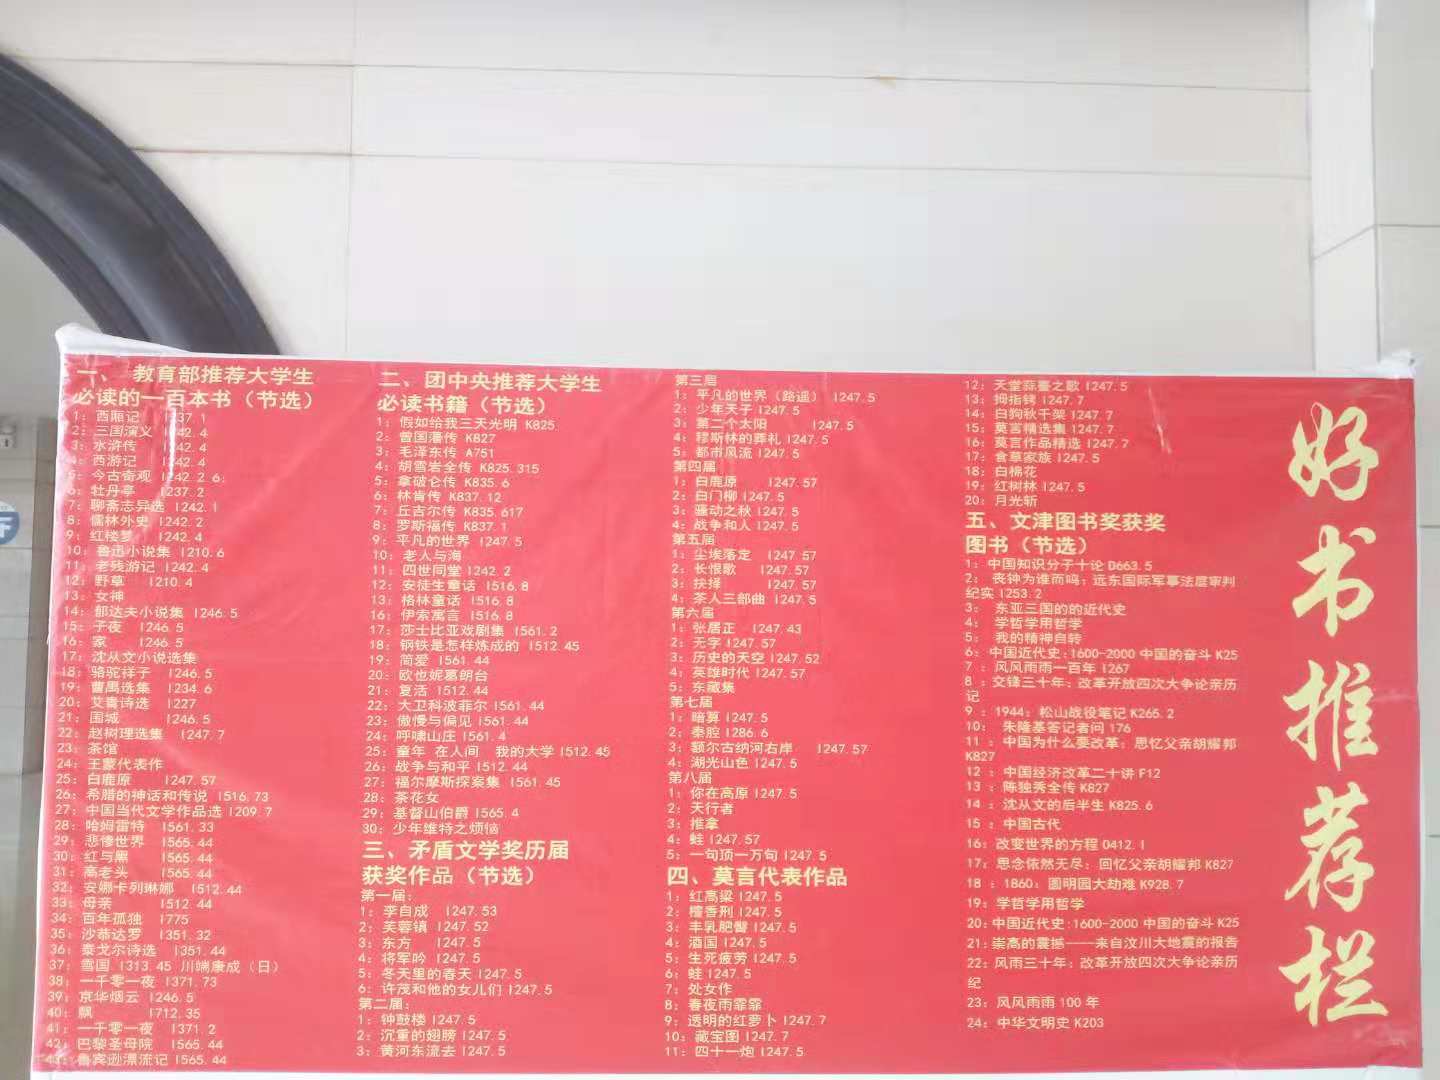 一、 教育部推荐大学生
必读的一百本书（节选）
1：西厢记 I237.1
2：三国演义 I242.4
3：水浒传 I242.4
4：西游记 I242.4
5：今古奇观 I242.2 6：
6：牡丹亭 I237.2
7：聊斋志异选 I242.1
8：儒林外史 I242.2
9：红楼梦 I242.4
10：鲁迅小说集 I210.6
11：老残游记 I242.4
12：野草 I210.4
13：女神
14：郁达夫小说集 I246.5
15：子夜 I246.5
16：家 I246.5
17：沈从文小说选集
18：骆驼祥子 I246.5
19：曹禺选集 I234.6
20：艾青诗选 I227
21：围城 I246.5
22：赵树理选集 I247.7
23：茶馆
24：王蒙代表作
25：白鹿原 I247.57
26：希腊的神话和传说 I516.73
27：中国当代文学作品选 I209.7
28：哈姆雷特 I561.33
29：悲惨世界 I565.44
30：红与黑 I565.44
31：高老头 I565.44
32：安娜卡列琳娜 I512.44
33：母亲 I512.44
34：百年孤独 I775
35：沙恭达罗 I351.32
36：泰戈尔诗选 I351.44
37：雪国 I313.45 川端康成（日）
38：一千零一夜 I371.73
39：京华烟云 I246.5
40：飘 I712.35
41：一千零一夜 I371.2
42：巴黎圣母院 I565.44
43：鲁宾逊漂流记 I565.44
二、团中央推荐大学生
必读书籍（节选）
1：假如给我三天光明 K825.
2：曾国藩传 K827
3：毛泽东传 A751
4：胡雪岩全传 K825.315
5：拿破仑传 K835.6
6：林肯传 K837.12
7：丘吉尔传 K835.617
8：罗斯福传 K837.1
9：平凡的世界 I247.5
10：老人与海
11：四世同堂 I242.2
12：安徒生童话 I516.8
13：格林童话 I516.8
16：伊索寓言 I516.8
17：莎士比亚戏剧集 I561.2
18：钢铁是怎样炼成的 I512.45
19：简爱 I561.44
20：欧也妮葛朗台
21：复活 I512.44
22：大卫科波菲尔 I561.44
23：傲慢与偏见 I561.44
24：呼啸山庄 I561.4
25：童年 在人间 我的大学 I512.45
26：战争与和平 I512.44
27：福尔摩斯探案集 I561.45
28：茶花女
29：基督山伯爵 I565.4
30：少年维特之烦恼
三、矛盾文学奖历届
获奖作品（节选）
第一届：
1：李自成 I247.53
2：芙蓉镇 I247.52
3：东方 I247.5
4：将军吟 I247.5
5：冬天里的春天 I247.5
6：许茂和他的女儿们 I247.5
第二届：
1：钟鼓楼 I247.5
2：沉重的翅膀 I247.5
3：黄河东流去 I247.5
第三届
1：平凡的世界（路遥） I247.5
2：少年天子 I247.5
3：第二个太阳 I247.5
4：穆斯林的葬礼 I247.5
5：都市风流 I247.5
第四届
1：白鹿原 I247.57
2：白门柳 I247.5
3：骚动之秋 I247.5
4：战争和人 I247.5
第五届
1：尘埃落定 I247.57
2：长恨歌 I247.57
3：抉择 I247.57
4：茶人三部曲 I247.5
第六届
1：张居正 I247.43
2：无字 I247.57
3：历史的天空 I247.52
4：英雄时代 I247.57
5：东藏集
第七届
1：暗算 I247.5
2：秦腔 I286.6
3：额尔古纳河右岸 I247.57
4：湖光山色 I247.5
第八届
1：你在高原 I247.5
2：天行者
3：推拿
4：蛙 I247.57
5：一句顶一万句 I247.5
四、莫言代表作品
1：红高粱 I247.5
2：檀香刑 I247.5
3：丰乳肥臀 I247.5
4：酒国 I247.5
5：生死疲劳 I247.5
6：蛙 I247.5
7：处女作
8：春夜雨霏霏
9：透明的红萝卜 I247.7
10：藏宝图 I247.7
11：四十一炮 I247.5
12：天堂蒜薹之歌 I247.5
13：拇指铐 I247.7
14：白狗秋千架 I247.7
15：莫言精选集 I247.7
16：莫言作品精选 I247.7
17：食草家族 I247.5
18：白棉花
19：红树林 I247.5
20：月光斩
五、文津图书奖获奖
图书（节选）
1：中国知识分子十论 D663.5
2： 丧钟为谁而鸣：远东国际军事法庭审判
纪实 I253.2
3： 东亚三国的的近代史
4： 学哲学用哲学
5： 我的精神自转
6：中国近代史：1600-2000 中国的奋斗 K25
7 ：风风雨雨一百年 I267
8 ：交锋三十年：改革开放四次大争论亲历
记
9 ：1944：松山战役笔记 K265.2
10： 朱隆基答记者问 176
11 ：中国为什么要改革：思忆父亲胡耀邦
K827
12 ：中国经济改革二十讲 F12
13 ：陈独秀全传 K827
14 ：沈从文的后半生 K825.6
15 ：中国古代
16：改变世界的方程 O412.1
17：思念依然无尽：回忆父亲胡耀邦 K827
18 ：1860：圆明园大劫难 K928.7
19：学哲学用哲学
20：中国近代史：1600-2000 中国的奋斗 K25
21：崇高的震撼——来自汶川大地震的报告
22：风雨三十年：改革开放四次大争论亲历
纪
23：风风雨雨 100 年
24：中华文明史 K203
好书推荐栏